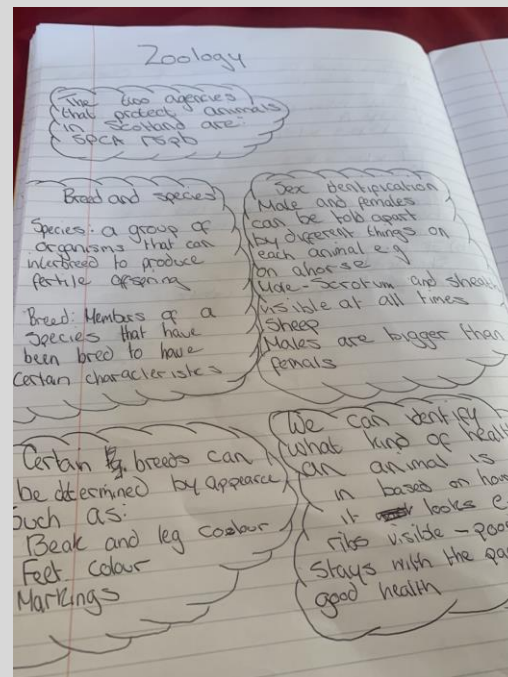 Zoology
The two agencies
that protect animals
in Scotland are:
SPCA rspb
Breed and species
Species: a group of
organisms that can
interbreed to produce
fertile offspring
Breed: Members of a
species that have
been bred to have
certain characteristcs
Sex identification
Male and females
can be told apart
by different things on
each animal e.g
on ahorse
Male - Scrotum and sheath
visible at all times
Sheep
Males are bigger than
femals
Certain breeds can
be determined by appearce
such as:
Beak and leg coolour
Feet colour
Markings
We can identify
what kind of health
an animal is
in based on how
it looks e.
ribs visible - poor
stays with the pa
good health